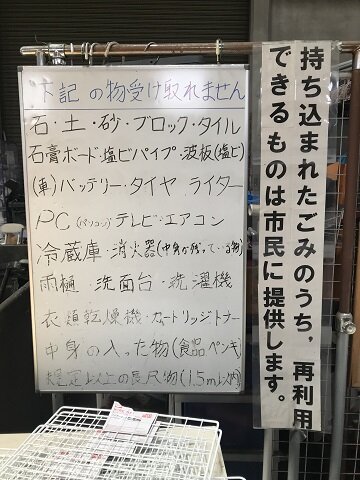 下記の物受け取れません
石・土・砂・ブロック・タイル
石膏ボード・塩ビパイプ・波板(塩ビ)
(車)バッテリー・タイヤ ライター
PC(パソコン)テレビ・エアコン
冷蔵庫・消火器(中身が残っている物)
雨樋・洗面台・洗濯機
衣類乾燥機・カートリッジトナー
中身の入った物(食品 ペンキ)
以上の長尺物(1.5m以内)
持ち込まれたごみのうち,再利用
できるものは市民に提供します。